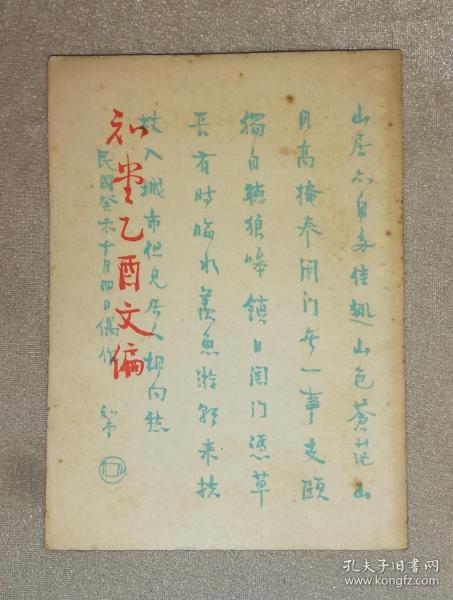 山居亦自多佳趣山色蒼茫山
月高掩卷閉門無一事支頤
獨自聽狼嗥鎮日関門憑草
長有時臨水羨魚游朝来扶
杖入城市但見居人相向愁
民國癸未十月四日偶作
知堂
知堂乙酉文編
孔夫子旧书网
www.kongfz.com